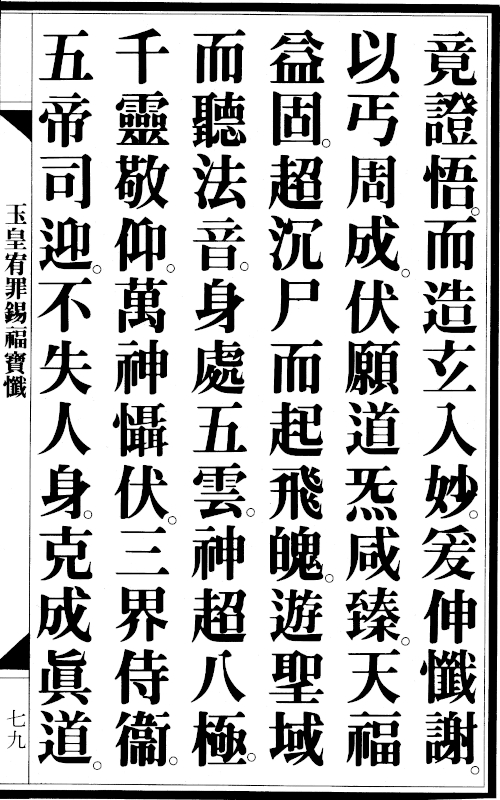 竟證悟。而造玄入妙。爰伸懺謝。
以丐周成。伏願道炁咸臻。天福
益固。超沉尸而起飛魄。遊聖域
而聽法音。身處五雲。神超八極。
千靈敬仰。萬神懾伏。三界侍衞。
五帝司迎。不失人身。克成眞道。
玉皇宥罪錫福寶懺
七九